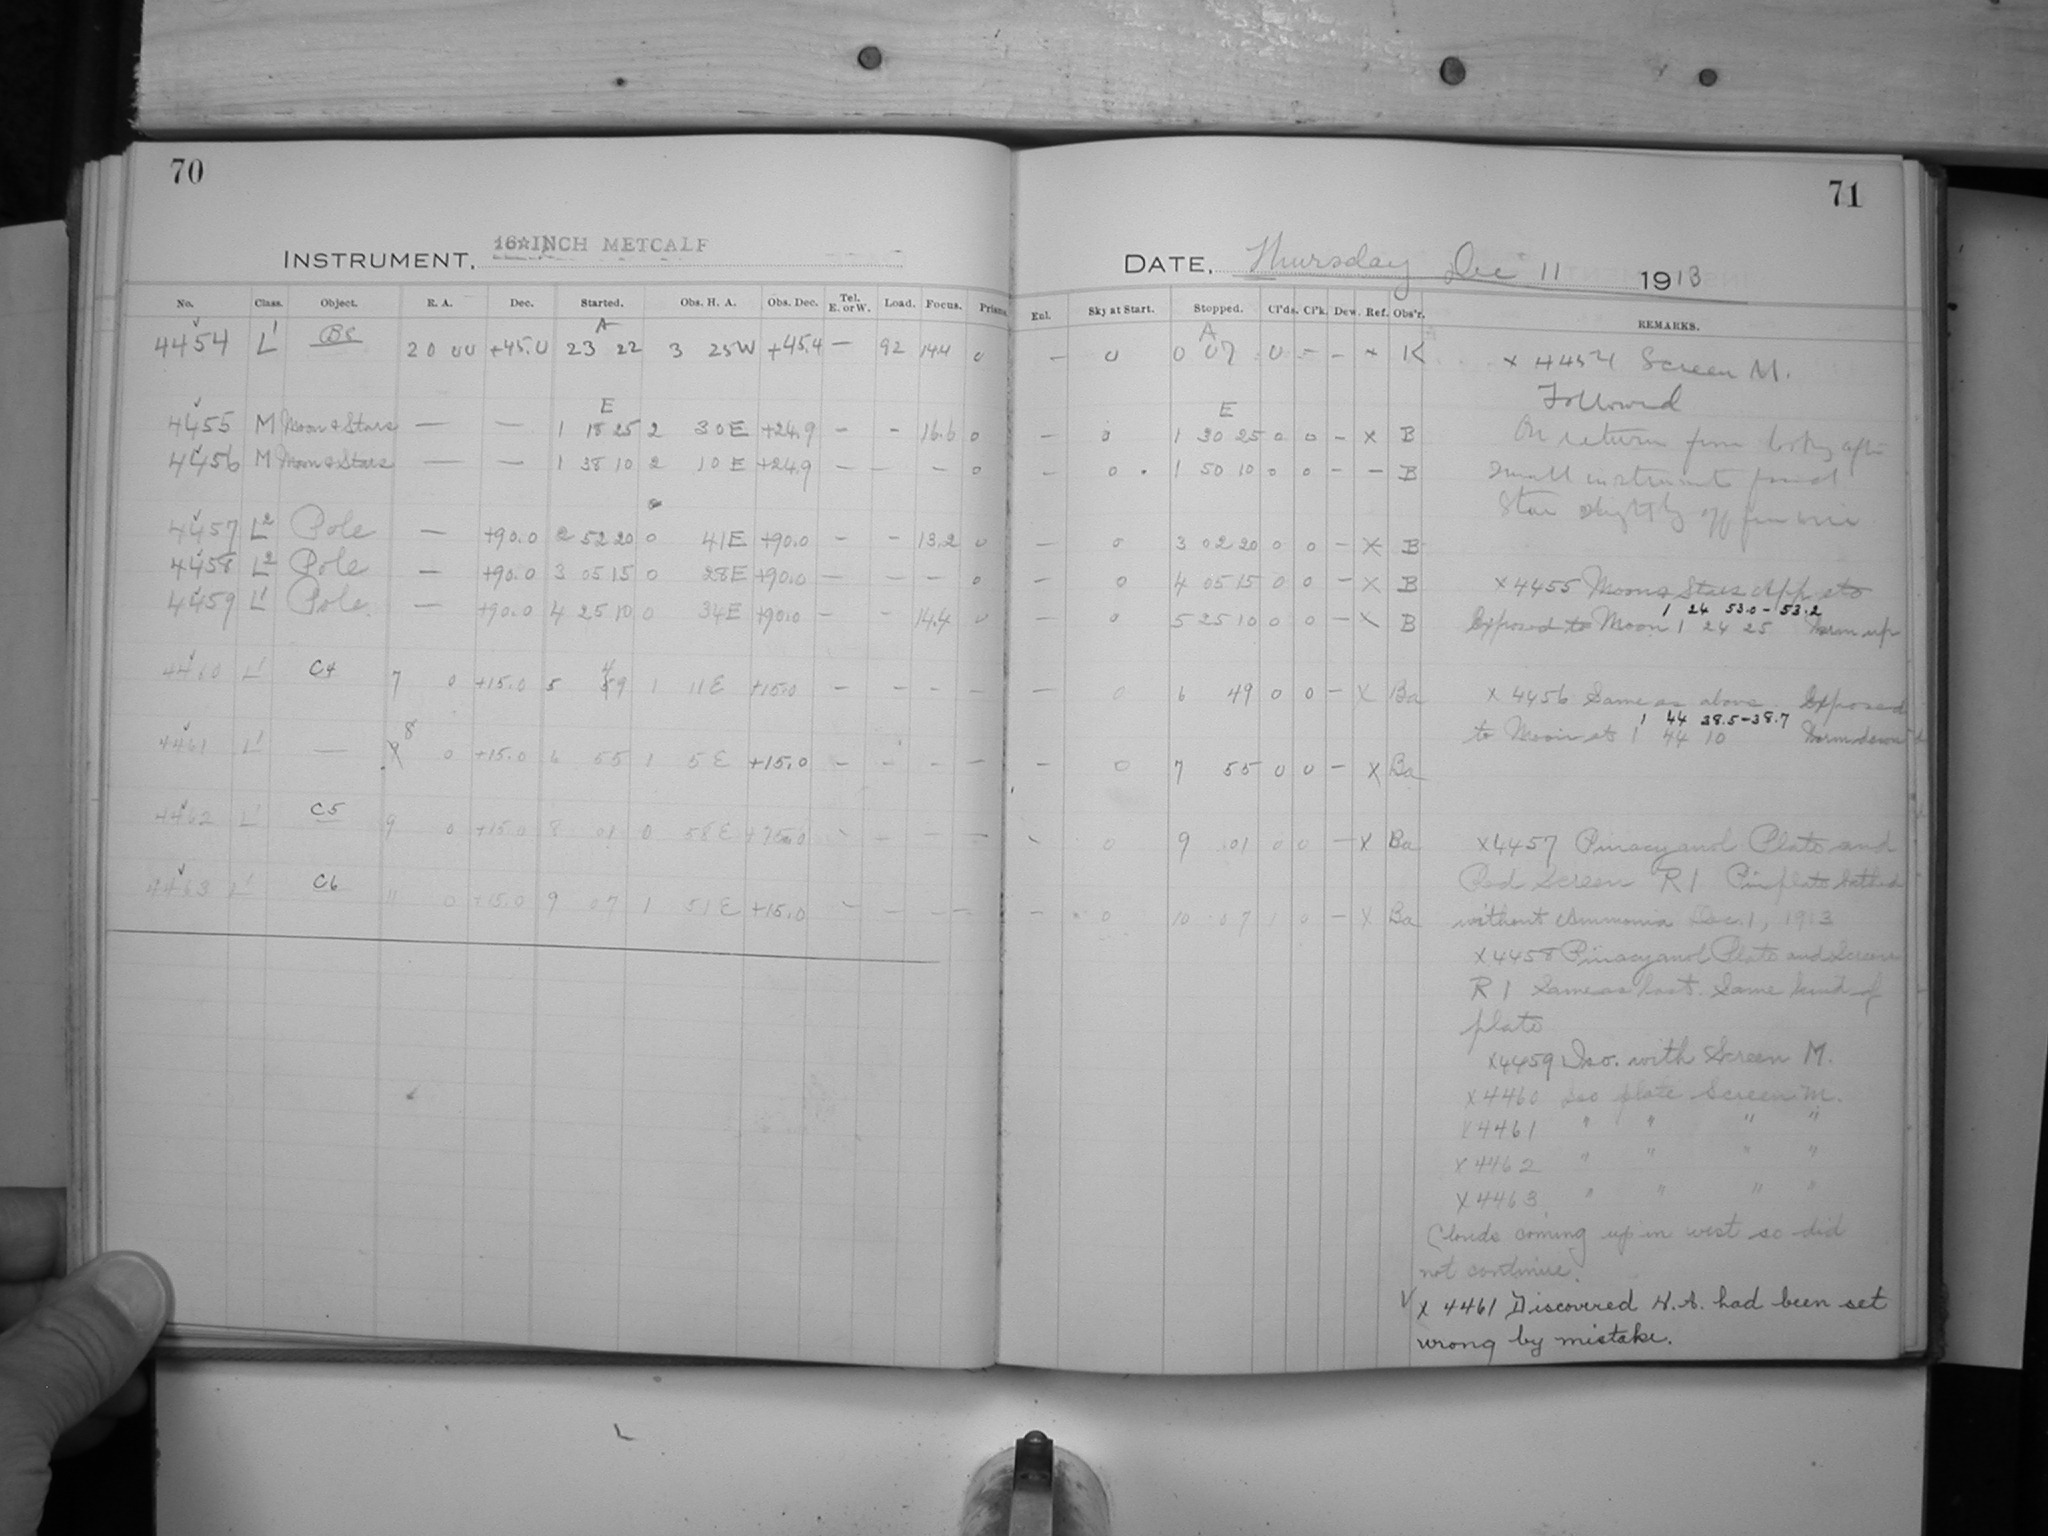 70
INSTRUMENT, 16☆INCH METCALF
No. Class. Object. R. A. Dec. Started. Obs. H. A. Obs. Dec. Tel. E. or W. Load. Focus. Prism.
A
4454 L1 BS 20 00 +45.0 23 22 3 25W +45.4 — 92 14.4 0
E
4455 M Moon & Stars — — 1 18 25 2 30E +24.9 - - 16.6 0
4456 M Moon & Stars — — 1 38 10 2 10E +24.9 — — - 0
4457 L2 Pole — +90.0 2 52 20 0 41E +90.0 - - 13.2 0
4458 L2 Pole — +90.0 3 05 15 0 28E +90.0 — — - 0
4459 L1 Pole — +90.0 4 25 10 0 34E +90.0 - - 14.4 0
4460 L1 C4 7 0 +15.0 5 49 1 11E +15.0 — - - -
8
4461 L1 — 9 0 +15.0 6 55 1 5E +15.0 — - - -
4462 L1 C5 9 0 +15.0 8 01 0 58E +15.0 - - - -
4463 L1 C6 11 0 +15.0 9 07 1 51E +15.0 - - - -
71
DATE, Thursday Dec 11 1913
Enl. Sky at Start. Stopped. Cl'ds. Cl'k. Dew. Ref. Obs'r. REMARKS.
A
— 0 0 07 0 - - x K x 4454 Screen M.
Followed
E
— 0 1 30 25 0 0 - x B On return from looking after
— 0 1 50 10 0 0 - - B small instruments found
star slightly off from wire
— 0 3 02 20 0 0 - x B
— 0 4 05 15 0 0 - x B x 4455 Moon & Stars App sto
1 24 53.0 - 53.2
— 0 5 25 10 0 0 - x B Exposed to Moon 1 24 25 up
— 0 6 49 0 0 - x Ba x 4456 Same as above Exposed
1 44 38.5-38.7
to Moon at 1 44 10 down
— 0 7 55 0 0 - x Ba
- 0 9 01 0 0 - x Ba x4457 Pinacyanol Plate and
Red Screen R1 Pin plate bathed
- 0 10 07 1 0 - x Ba without Ammonia Dec. 1, 1913
x4458 Pinacyanol Plate and Screen
R1 Same as last. Same kind of
plate
x4459 Iso. with Screen M.
x4460 Iso plate Screen M.
x4461 " " " "
x4462 " " " "
x4463 " " " "
Clouds coming up in west so did
not continue.
√ x 4461 Discovered H.A. had been set
wrong by mistake.